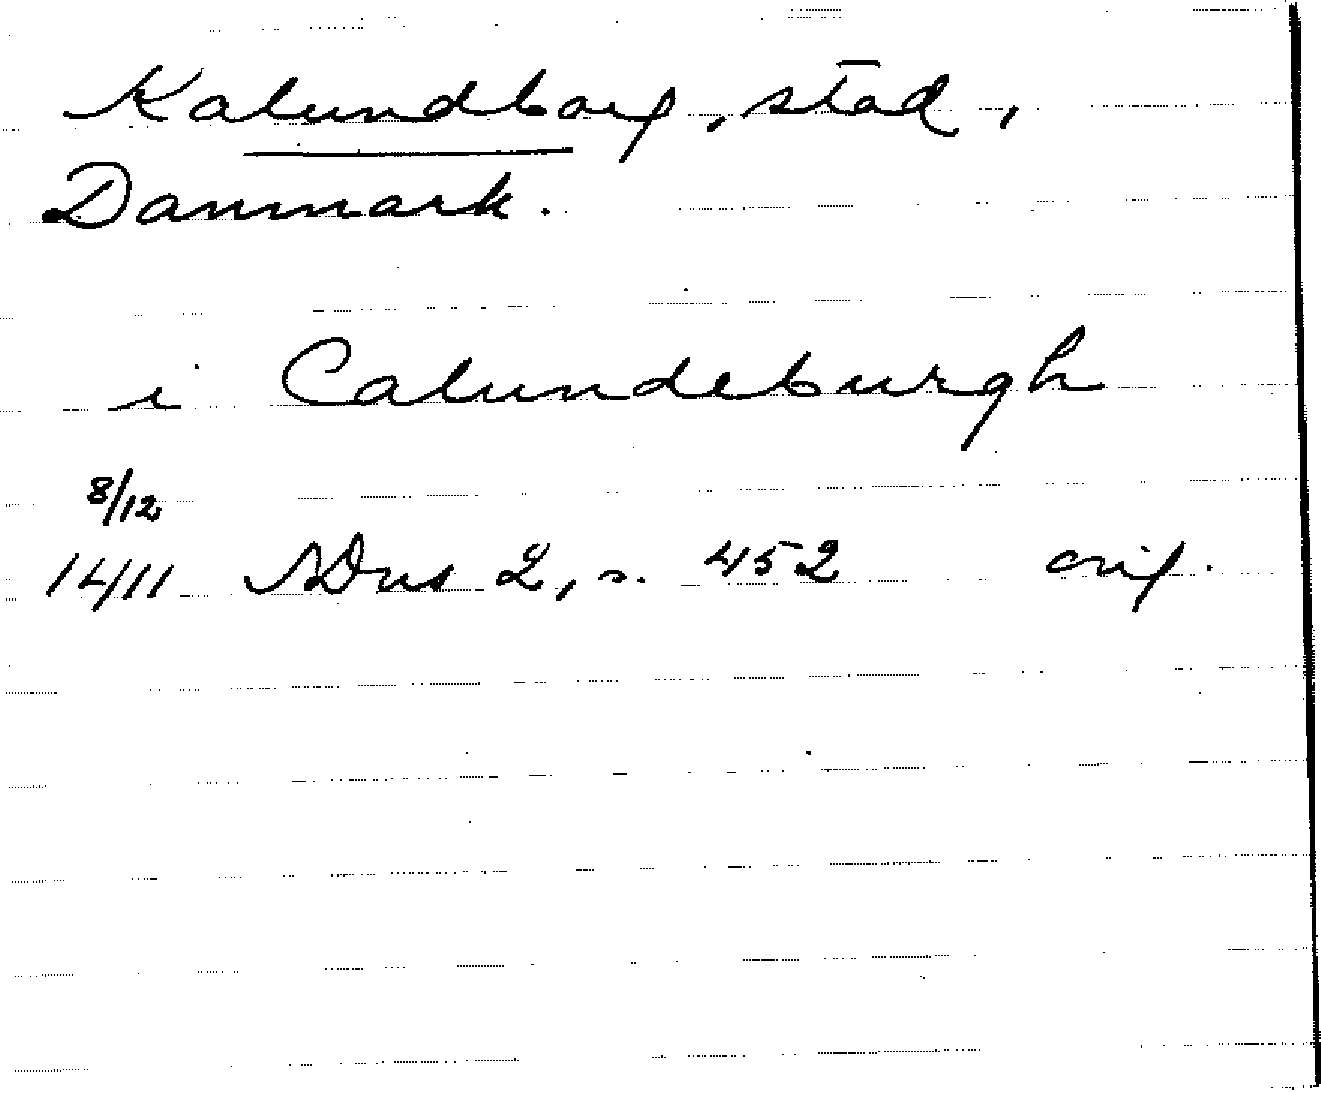 Kalundborg, stad,
Danmark.
i Calundeburgh
8/12
1411 SDns 2, s. 452 orig.